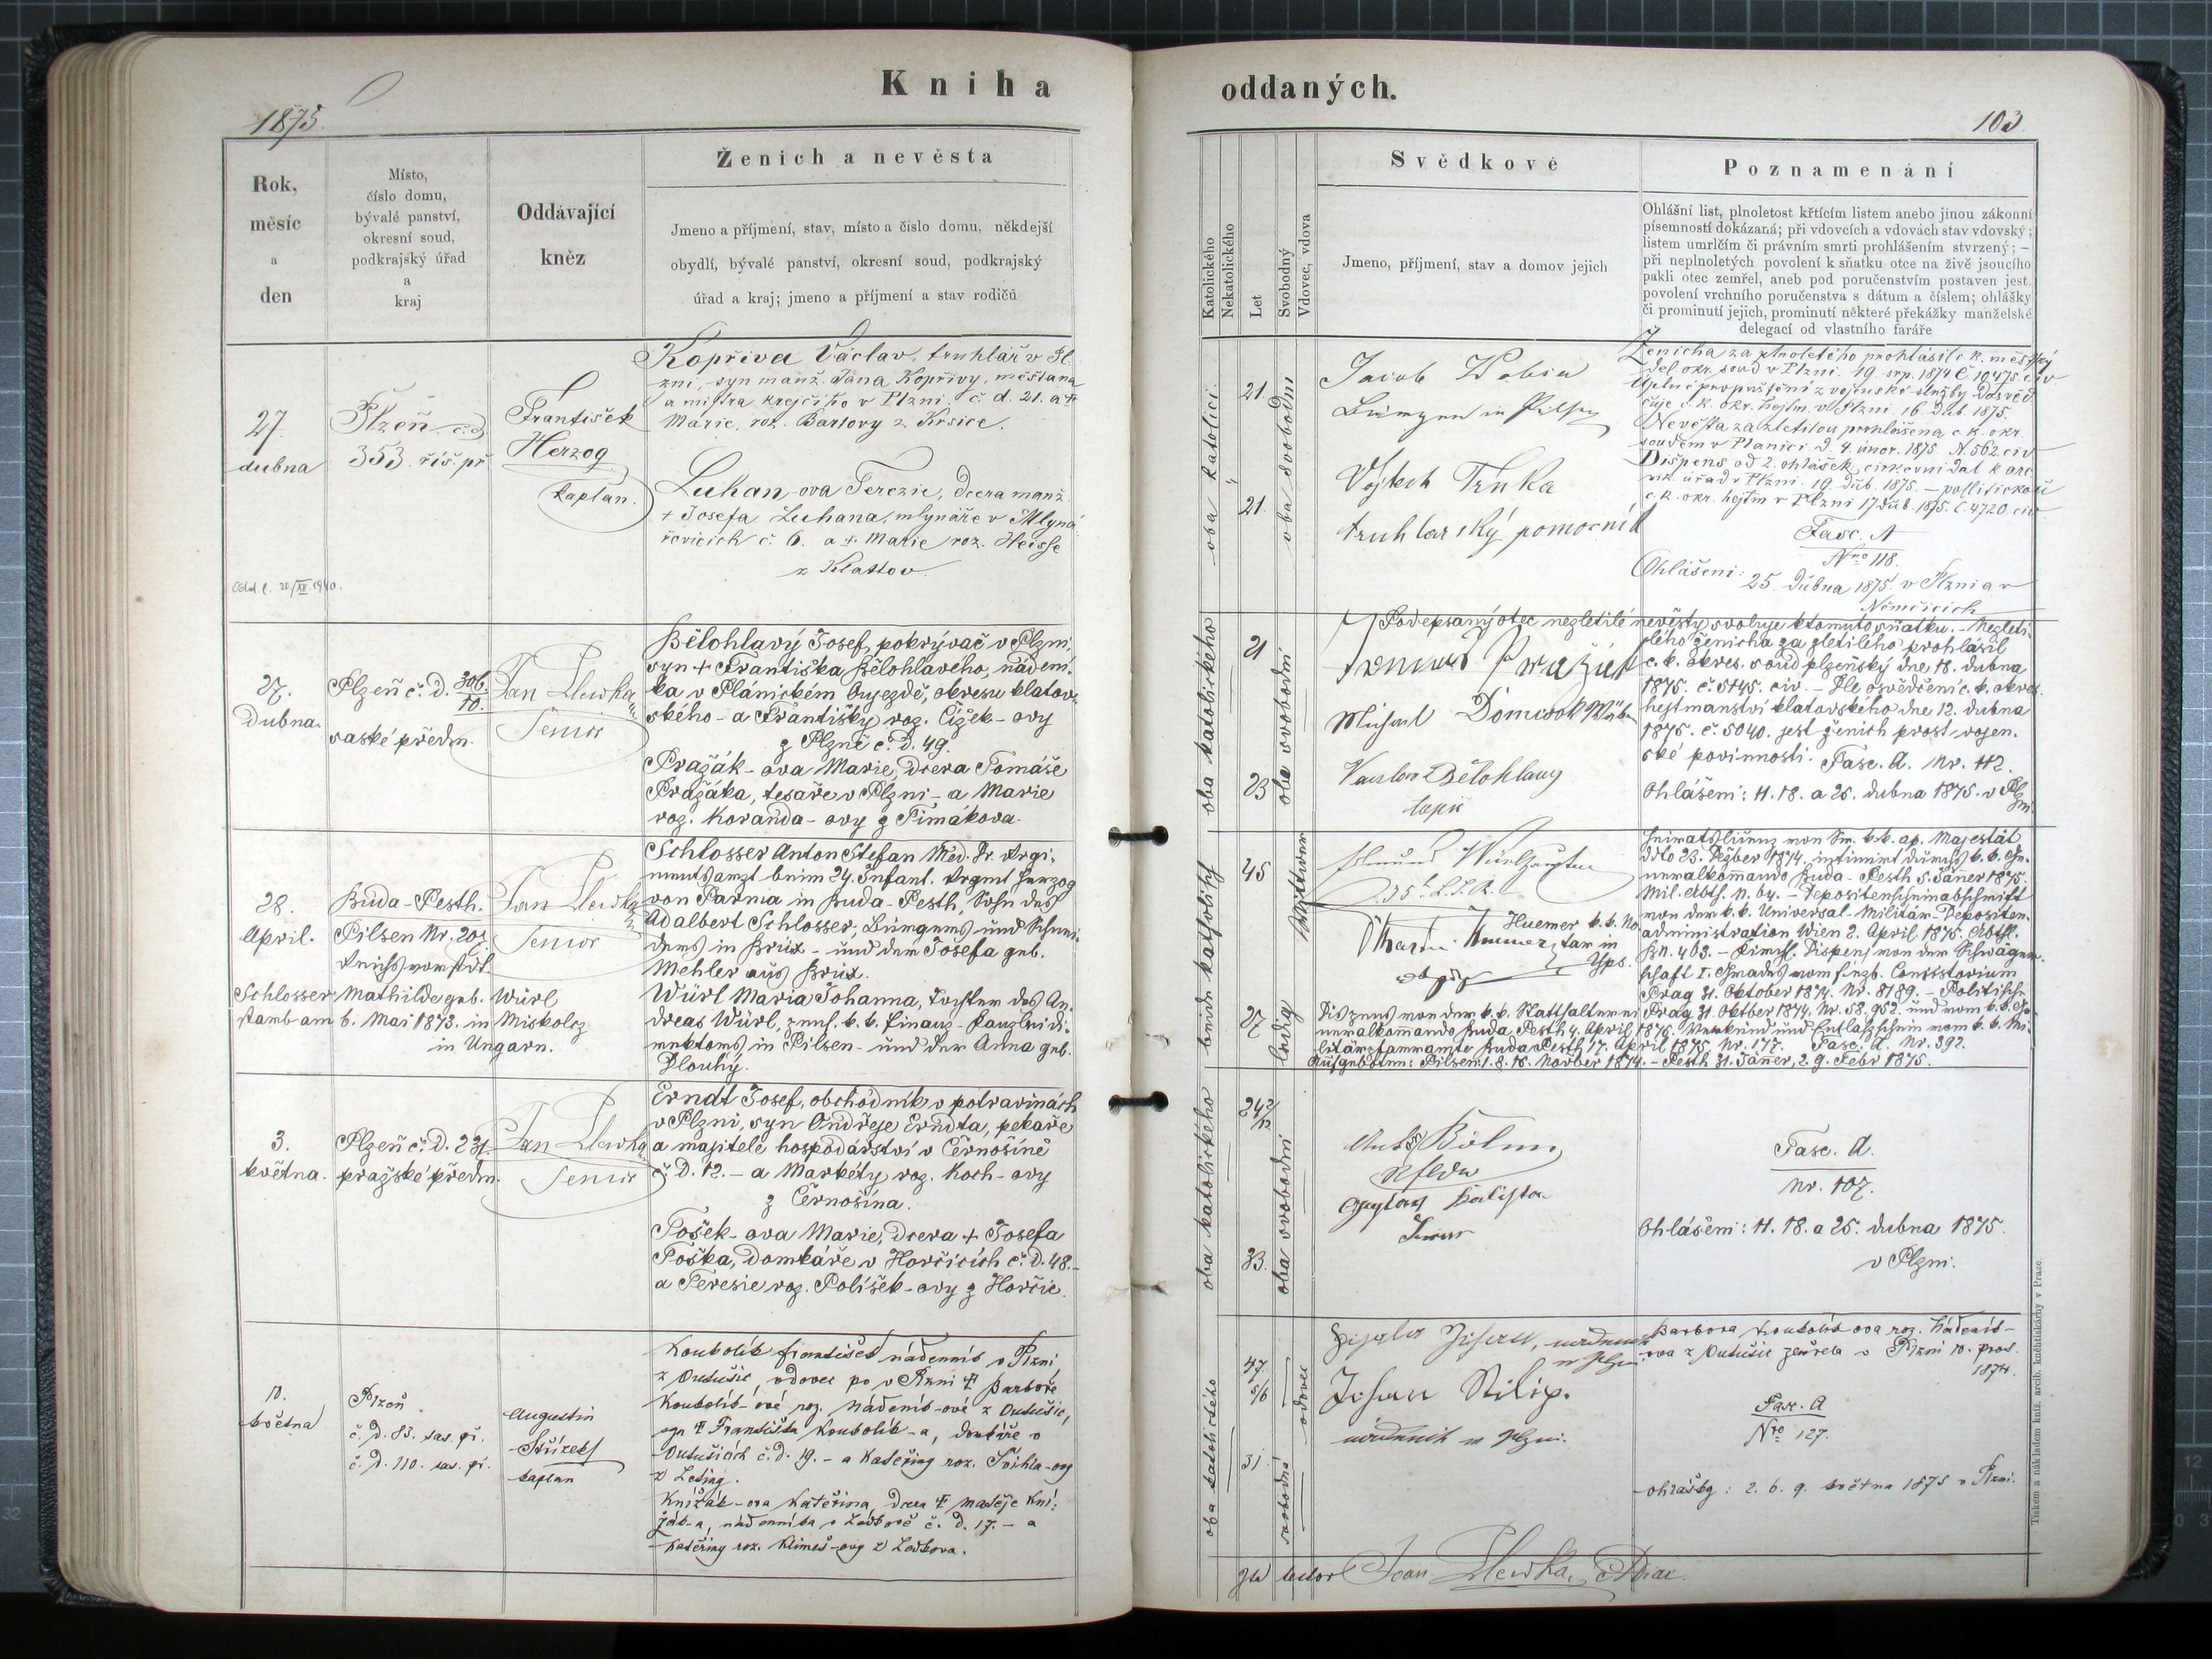 Kniha oddaných.
1875.
103
Rok,
měsíc
a
den
Místo,
číslo domu,
bývalé panství,
okresní soud,
podkrajský úřad
a
kraj
Oddávající
kněz
Ženich a nevěsta
Jmeno a příjmení, stav, místo a číslo domu, někdejší
obydlí, bývalé panství, okresní soud, podkrajský
úřad a kraj; jmeno a příjmení a stav rodičů
Katolického
Nekatolického
Let
Svobodný
Vdovec, vdova
Svědkové
Jmeno, příjmení, stav a domov jejich
Poznamenání
Ohlášní list, plnoletost křtícím listem anebo jinou zákonní
písemností dokázaná; při vdovcích a vdovách stav vdovský;
listem umrlčím či právním smrti prohlášením stvrzený; —
při neplnoletých povolení k sňatku otce na živě jsoucího
pakli otec zemřel, aneb pod poručenstvím postaven jest
povolení vrchního poručenstva s dátum a číslem; ohlášky
či prominutí jejich, prominutí některé překážky manželské
delegací od vlastního faráře
27.
dubna
Plzeň č. d.
353. říš. př.
František
Herzog
kaplan.
Kopřiva Václav, truhlář v Pl.
zni, syn manž. Jana Kopřivy, měšťana
a mistra krejčího v Plzni č. d. 21. a +
Marie, roz. Bartovy z Krsic.
Luhan-ova Terezie, dcera manž.
+ Josefa Luhana, mlynáře v Mlyna
řovicích č. 6. a + Marie roz. Heisse
z Klattov.
Odd. l. 20/XI. 1940.
oba katolíci
21.
21.
oba svobodni
Jacob
Vojtěch Trnka
truhlarský pomocník
Ženicha za plnoletého prohlásil c. k. městský
del. okr. soud v Plzni 19. srp. 1874 č. 10475. civ
Uplné propuštění z vojenské služby dosvěd
čuje c. k. okr. hejtm. v Plzni 16. dub. 1875.
Nevěsta za zletilou prohlášena c. k. okr.
soudem v Planici d. 4. únor. 1875 N. 562. civ
Dispens od 2. ohlášek církevní dal k. arc.
vik. úřad v Plzni 19. dub. 1875. — politickou
c. k. okr. hejtm v Plzni 17 dub. 1875. č. 4720. civ
Fasc. A
Nro 118.
Ohlášení:
25. dubna 1875. v Plzni a v
Němčicích
27.
Dubna.
Plzeň č. D. 306./10.
saské předm.
Jan Slewka
Senior
Bělohlavý Josef, pokrývač v Plzni,
syn + Františka Bělohlavého, nádení.
ka v Plánickém Oujezdě, okresu klatov.
ského - a Františky roz. Čížek-ovy
z Plzně č. D. 49.
Pražák-ova Marie, dcera Tomáše
Pražáka, tesaře v Plzni - a Marie
roz. Koranda-ovy z Timákova.
oba katolického
21
23
oba svobodní
Podepsaný otec nezletilé nevěsty svoluje k tomuto sňatku. — Nezleti-
Pražák
Michael Domisok
Bělohlavy
lého ženicha za zletilého prohlásil
c. k. okres. soud plzeňský dne 18. dubna
1875. č. 5145. civ. — Dle osvědčení c. k. okres.
hejtmanství klatovského dne 12. dubna
1875. č. 5040. jest ženich prost vojen.
ské povinnosti. Fasc. A. Nr. 112.
Ohlášení: 11. 18. a 25. dubna 1875. v Plzni.
28.
April.
Buda-Pesth.
Pilsen Nr. 207
Reichsvorstdt
Schlosser Mathilde geb. Würl
starb am 6. Mai 1873. in Miskolcz
in Ungarn.
Jan Slewka
Senior
Schlosser Anton Stefan Med. Dr. Regi-
mentsarzt beim 24. Infant. Regmt Herzog
von Parma in Buda-Pesth, Sohn des
Adalbert Schlosser, Bürgers und Schnei-
ders in Brüx - und der Josefa geb.
Mehler aus Brüx.
Würl Maria Johanna, Tochter des An-
dreas Würl, pens. k. k. Finanz-Kanzleidi-
rektors in Pilsen - und der Anna geb.
Dlouhý.
beide katholisch
45
27
Wittwer
ledig
Huemer k. k. No
tar in
Yps.
Heiratslicenz von Sr. k. k. ap. Majestät
ddo 23. Dezber 1874. intimirt durchs k. k. Ge-
neralkomando Buda-Pesth 5. Jäner 1875.
Mil. Abth. N. 64. — Depositenscheinabschrift
von der k. k. Universal-Militär-Depositen.
administration Wien 2. April 1875. Abthl.
N. 403. — Kirchl. Dispens von der Schwäger-
schaft I. Grades vom fürzb. Consistorium
Prag 31. Oktober 1874. Nr. 8189. — Politische
Dispens von der k. k. Statthalterei Prag 31. Oktber 1874. Nr. 58.952. und vom k. k. Ge-
neralkomando Buda-Pesth 4. April 1875. Verkünd und Entlaßschein vom k. k. Mi-
litärpfarramte Buda-Pesth 17. April 1875. Nr. 177. Fasc. A. Nr. 392.
Aufgeboten: Pilsen 1. 8. 15. Novber 1874. — Pesth 31. Jäner, 2. 9. Febr 1875.
3.
května.
Plzeň č. D. 231.
pražské předm.
Jan Slewka
Senior
Erndt Josef, obchodník v potravinách
v Plzni, syn Ondřeje Erndta, pekaře
a majitele hospodářství v Černošíně
č. D. 12. — a Markéty roz. Koch-ovy
z Černošína.
Tošek-ova Marie, dcera + Josefa
Toška, domkáře v Horčicích č. D. 48. —
a Teresie roz. Polišek-ovy z Horčic.
oba katolického
24 2/12
33.
oba svobodní
Böhm
Fasc. A.
Nr. 107.
Ohlášení: 11. 18. a 25. dubna 1875.
v Plzni.
10.
května
Plzeň
č. D. 83. sas. př.
č. D. 110. sas. př.
Augustin
kaplan
Koubolík František nádenník v Plzni
z Outušic, vdovec po v Plzni + Barboře
Koubolík-ové roz. Nádeník-ové z Outušic,
syn + Františka Koubolík-a, domkáře v
Outušicích č. d. 19. — a Kateřiny roz. Švihla-ovy
z Letjny.
Knížák-ova Kateřina, dcera + Matěje Kní-
žák-a, nádenníka v Ledkově č. D. 17. — a
Kateřiny roz. Klimeš-ovy z Ledkova.
oba katolického
47
5/6
31
vdovec
svobodná
Johann
úředník v Plzni.
Barbora Koubolík-ova roz. Nádeník-
ova z Outušic zemřela v Plzni 10. pros.
1874.
Fasc. A
Nro 127.
ohlášky: 2. 6. 9. května 1875 v Plzni.
Joan Slewka,
Tiskem a nákladem kníž. arcib. kněhtiskárny v Praze